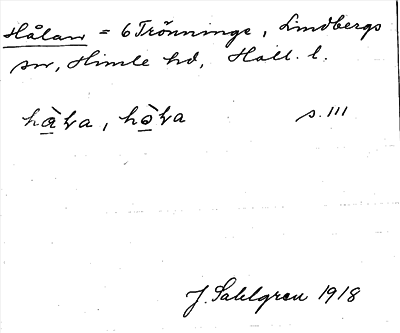 Hålan = 6 Trönninge, Lindbergs
sn, Himle hd, Hall. l.
hàⱡa, hòⱡa s. 111
J. Sahlgren 1918